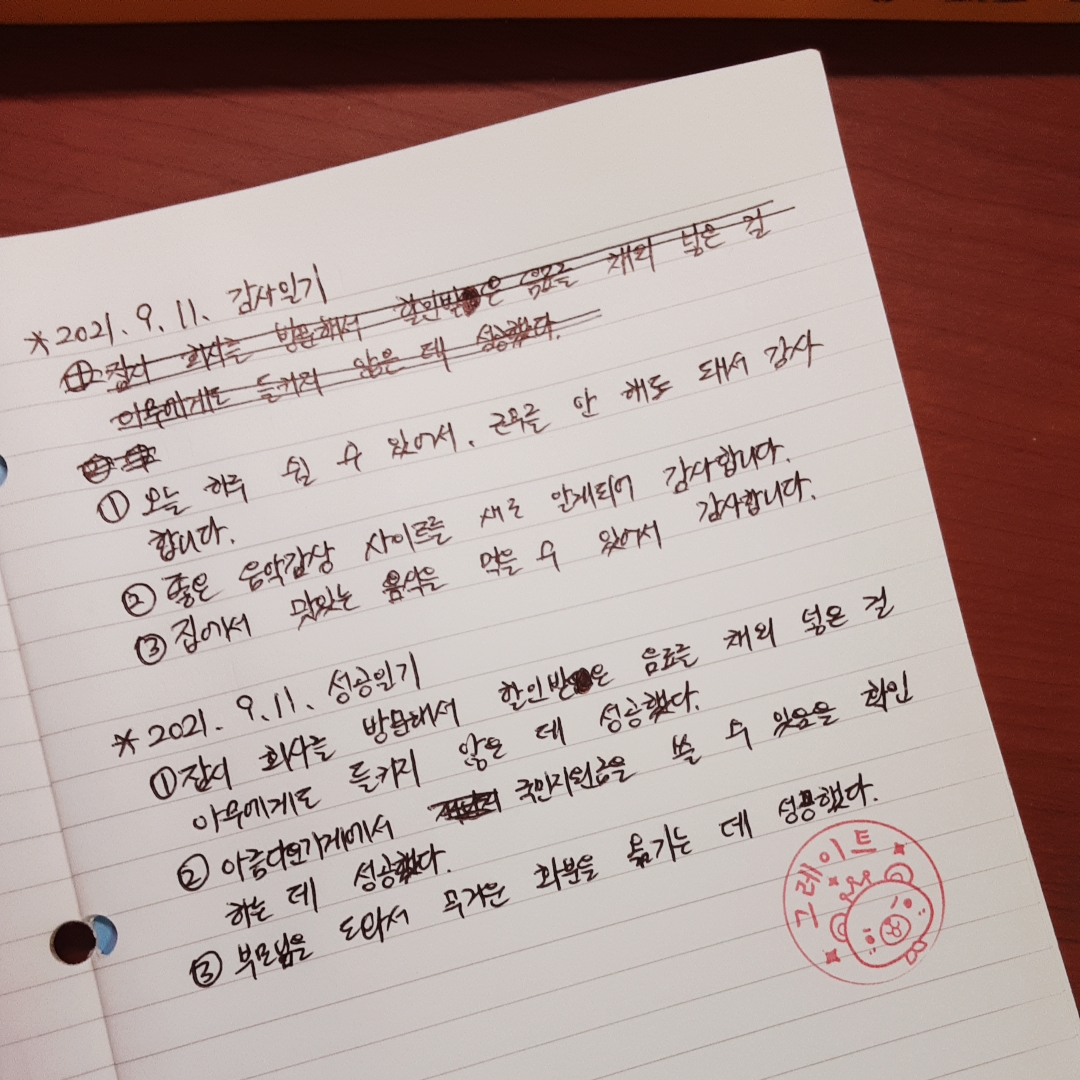 *2021. 9. 11. 감사일기
① 잠시 회사를 방문해서 할인받은 음료를 채워 넣은 걸
아무에게도 들키지 않은 데 성공했다.
① 오늘 하루 쉴 수 있어서. 근무를 안 해도 돼서 감사
합니다.
② 좋은 음악감상 사이트를 새로 알게되어 감사합니다.
③ 집에서 맛있는 음식을 먹을 수 있어서 감사합니다.
*2021. 9. 11. 성공일기
① 잠시 회사를 방문해서 할인받은 음료를 채워 넣은 걸
아무에게도 들키지 않은 데 성공했다.
② 아름다운가게에서 국민지원금을 쓸 수 있음을 확인
하는 데 성공했다.
③ 부모님을 도와서 무거운 화분을 옮기는 데 성공했다.
그레이트